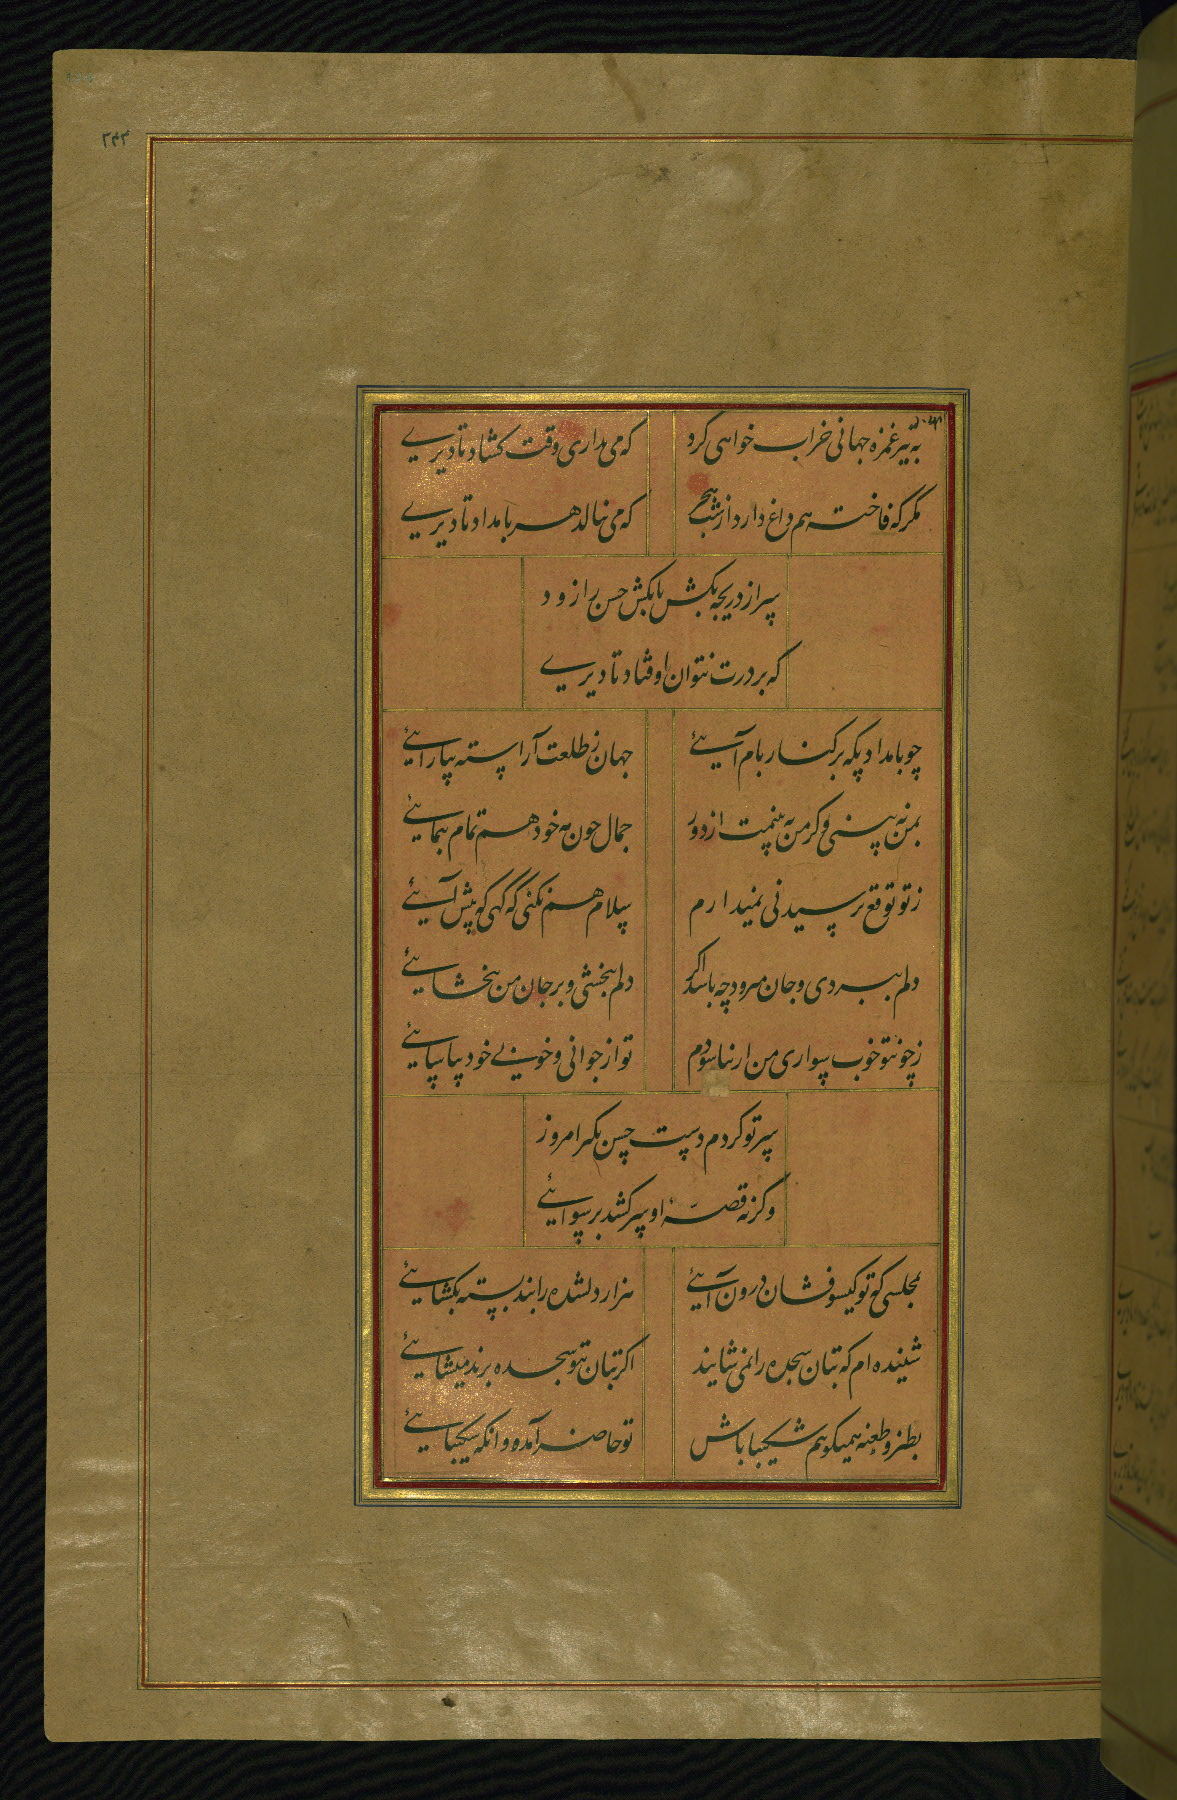 ۲۴۲
به تیر غمزه جهانی خراب خواهی کرد
که می‌داری وقت کشاد تا دیری
مگر که فاخته هم داغ دارد از شب هجر
که می نالد هر بامداد تا دیری
سر از دریچه بکش یا بکش حسن را زود
که بر درت نتوان اوفتاد تا دیری
چو بامداد پگه بر کنار بام آئی
جهان ز طلعت آراسته بیارائی
بمن نه بینی و کر من به بینمت از دور
جمال چون مه خود هم تمام بنمائی
ز تو توقع پرسیدنی نمیدارم
سلام هم نکنی گه گهی که پیش آئی
دلم ببردی و جان میرود چه باشد اگر
دلم ببخشی و بر جان من ببخشائی
ز چون تو خوب سواری من ار نیاسودم
تو از جوانی و خوبی خود بیاسائی
سر تو کردم دست حسن بگیر امروز
وگرنه قصه او سر کشد برسوائی
بمجلسی که تو گیسو فشان درون آئی
هزار دلشده را بند بسته بگشائی
شنیده ام که بتان سجده را نمی شایند
اگر بتان بتو سجده برند میشائی
بطنز و طعنه همی گوئیم شکیبا باش
تو حاضر آمده و آنگه شکیبائی